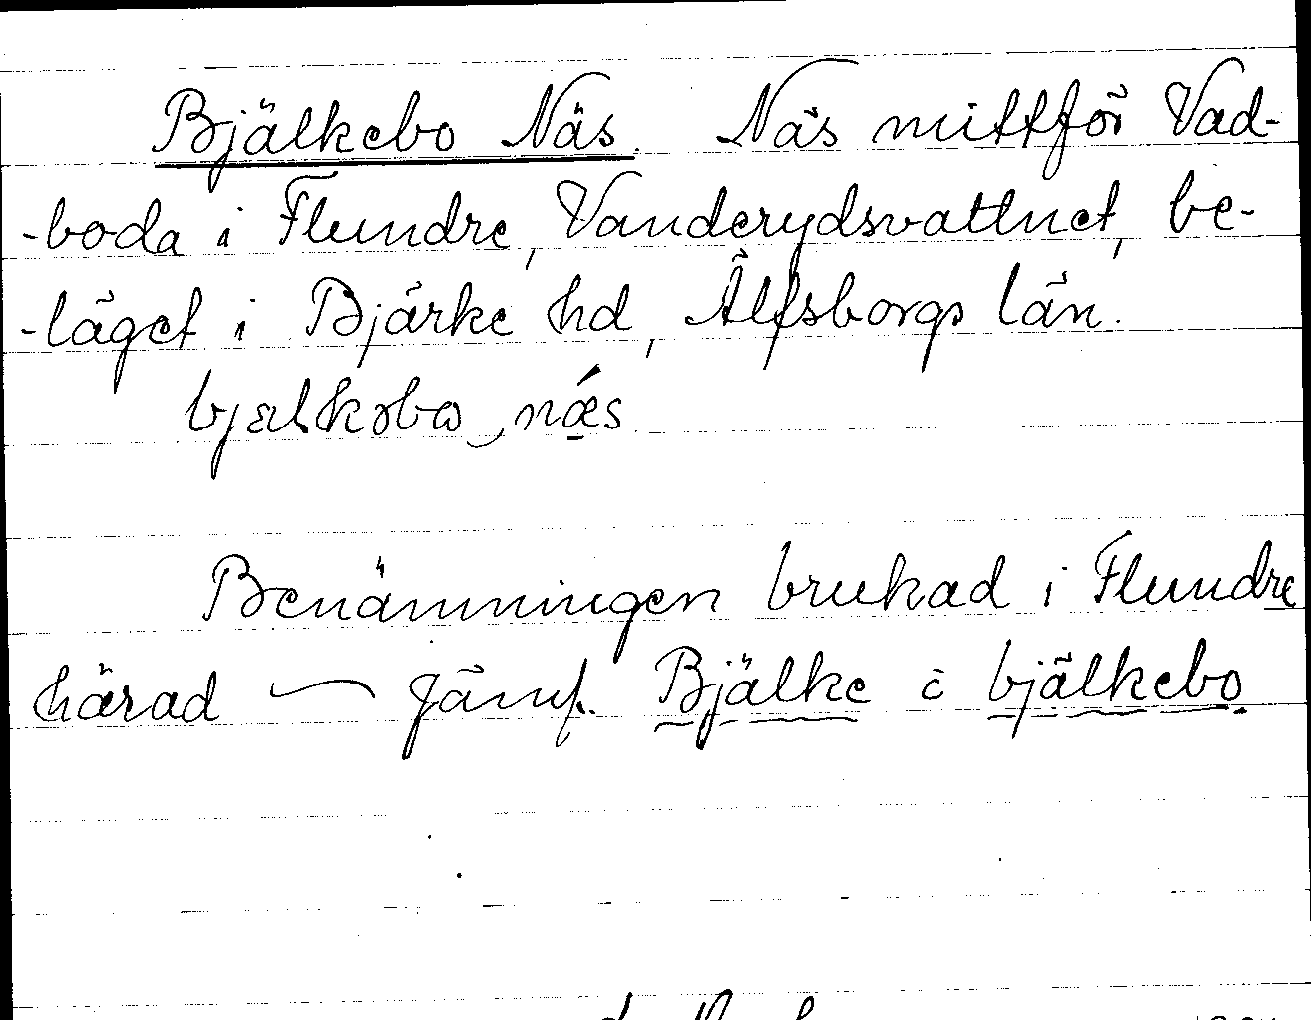 Bjälkebo Näs. Näs mittför Vad-
-boda i Flundre, Vanderydsvattnet, be-
-läget i Bjärke hd, Älfsborgs län.
bjælkəbω næ̀s
Benämningen brukad i Flundre
härad — Jämf. Bjälke i bjälkebo